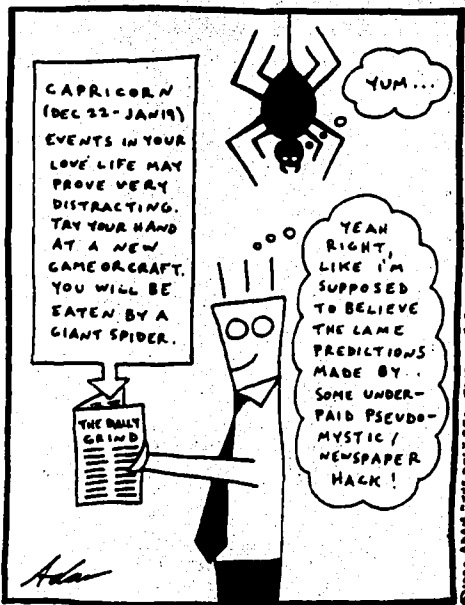 CAPRICORN
(DEC 22-JAN 19)
EVENTS IN YOUR
LOVE LIFE MAY
PROVE VERY
DISTRACTING.
TRY YOUR HAND
AT A NEW
GAME OR CRAFT.
YOU WILL BE
EATEN BY A
GIANT SPIDER.
YUM...
YEAH
RIGHT,
LIKE I'M
SUPPOSED
TO BELIEVE
THE LAME
PREDICTIONS
MADE BY
SOME UNDER-
PAID PSEUDO-
MYSTIC/
NEWSPAPER
HACK!
THE DAILY
GRIND
Adam